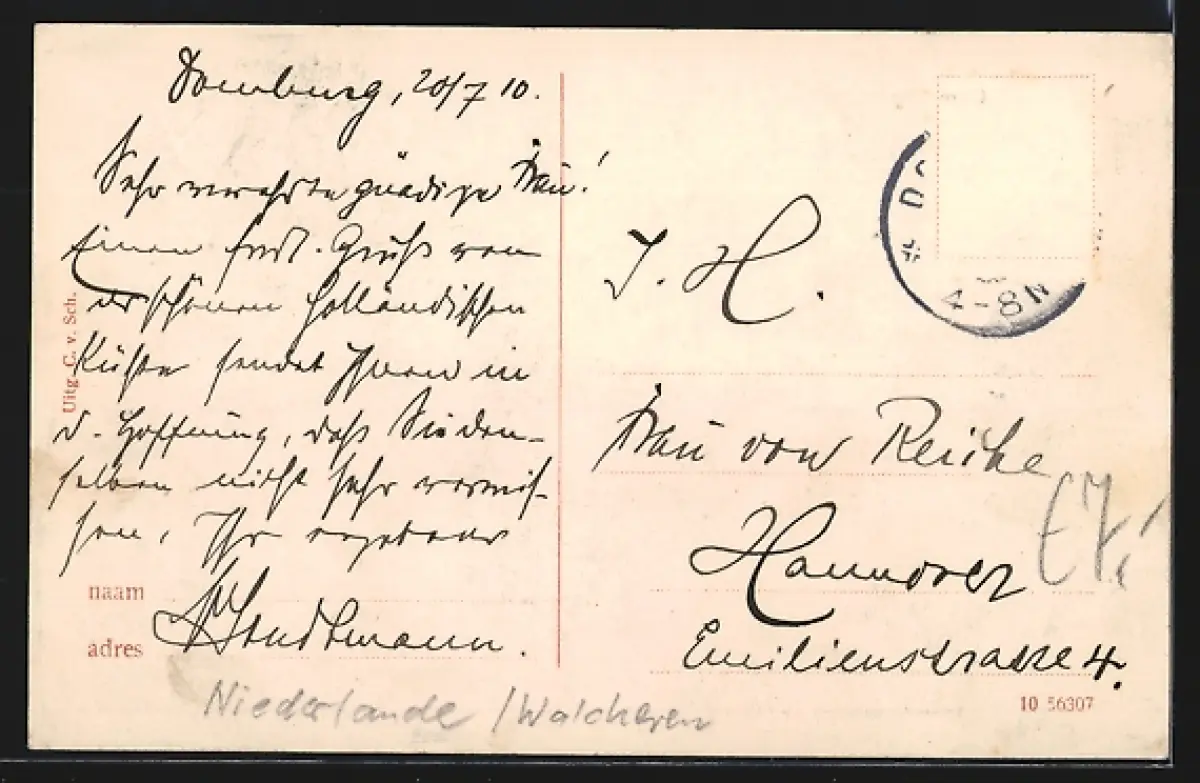 Domburg, 20/7 10.
Sehr verehrte gnädige Frau!
Einen frdl. Gruß von
der schönen holländischen
Küste sendet Ihnen in
d. Hoffnung, daß Sie den-
selben nicht sehr vermis-
sen, Ihr ergebener
Stradtmann.
naam
adres
Uitg. C. v. Sch.
Niederlande / Walcheren
* DO
4-8N
J. H.
Frau von Reiche
Hannover
Emilienstrasse 4.
10 56307